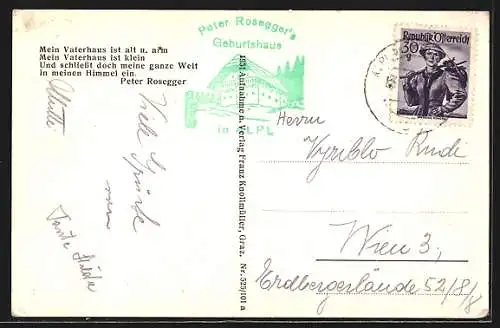 Mein Vaterhaus ist alt u. arm
Mein Vaterhaus ist klein
Und schließt doch meine ganze Welt
in meinen Himmel ein.
Peter Rosegger
Peter Rosegger's
Geburtshaus
in ALPL
1831 Aufnahme u. Verlag Franz Knollmüller, Graz. Nr. 525/101 a
Republik Österreich
30
g
Viele
Tante
Herrn
Rudi
Wien 3,
Erdbergerlände 52/8/8